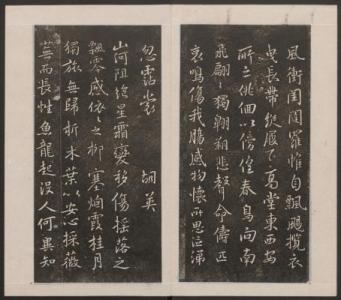 風衝閨闥羅帷自飄颺攬衣
曳長帶縱履下高堂東西安
所之徘徊以傍徨春鳥向南
飛翩翩獨翱翔悲聲命儔匹
哀鳴傷我腸感物懷所思泣涕
忽霑裳 胡英
山河阻絶星霜變移傷搖落之
飄零感依々之柳塞烟霞桂月
獨旅無歸折木葉以安心採薇
蕪而長性魚龍起沒人何異知